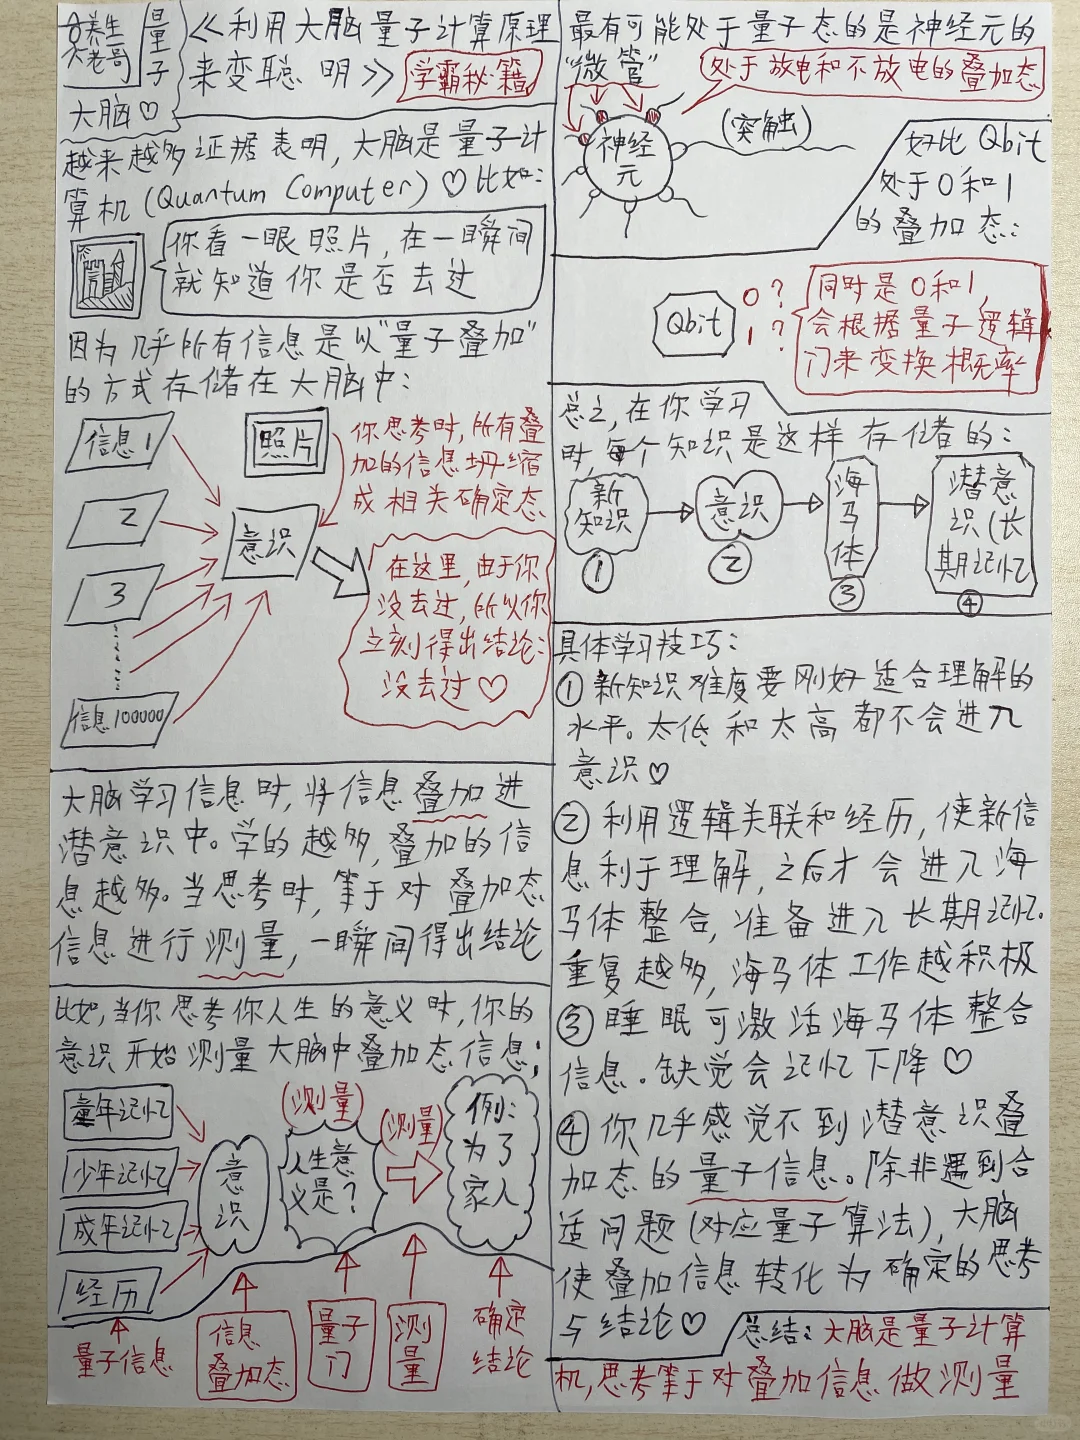 养生
大老哥
量子
大脑♡
《利用大脑量子计算原理
来变聪明》
学霸秘籍
越来越多证据表明,大脑是量子计
算机(Quantum Computer)♡比如:
你看一眼照片,在一瞬间
就知道你是否去过
因为几乎所有信息是以"量子叠加"
的方式存储在大脑中:
信息1
2
3
信息100000
照片
意识
你思考时,所有叠
加的信息坍缩
成相关确定态
在这里,由于你
没去过,所以你
立刻得出结论:
没去过♡
大脑学习信息时,将信息叠加进
潜意识中。学的越多,叠加的信
息越多。当思考时,等于对叠加态
信息进行测量,一瞬间得出结论
比如,当你思考你人生的意义时,你的
意识开始测量大脑中叠加态信息;
童年记忆
少年记忆
成年记忆
经历
意
识
(测量)
人生意
义是?
(测量)
例:
为了
家人
量子信息
信息
叠加态
量子
门
测
量
确定
结论
最有可能处于量子态的是神经元的
"微管"
处于放电和不放电的叠加态
神经
元
(突触)
好比Qbit
处于0和1
的叠加态:
Qbit
0?
1?
同时是0和1,
会根据量子逻辑
门来变换概率
总之,在你学习
时,每个知识是这样存储的:
新
知识
①
意识
②
海
马
体
③
潜意
识(长
期记忆
④
具体学习技巧:
①新知识难度要刚好适合理解的
水平。太低和太高都不会进入
意识♡
②利用逻辑关联和经历,使新信
息利于理解,之后才会进入海
马体整合,准备进入长期记忆。
重复越多,海马体工作越积极
③睡眠可激活海马体整合
信息。缺觉会记忆下降♡
④你几乎感觉不到潜意识叠
加态的量子信息。除非遇到合
适问题(对应量子算法),大脑
使叠加信息转化为确定的思考
与结论♡
总结:大脑是量子计算
机,思考等于对叠加信息做测量